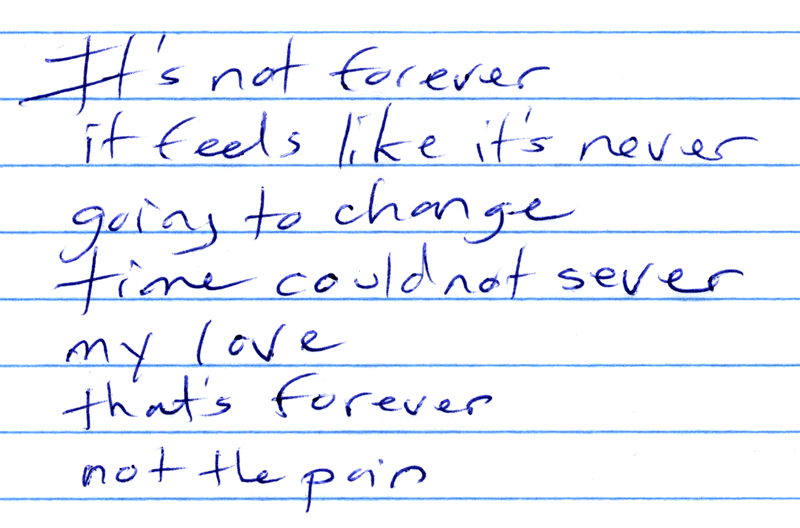 It's not forever
it feels like it's never
going to change
time couldnot sever
my love
that's forever
not the pain